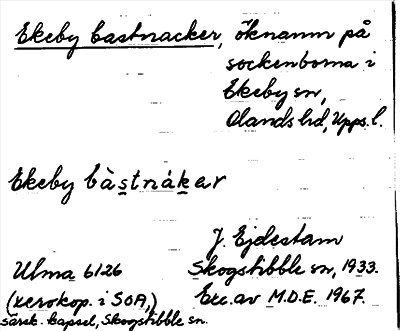 Ekeby bastnacker, öknamn på
sockenborna i
Ekeby sn,
Olands hd, Upps. l.
Ekeby bàstnákar
J. Ejdestam
Ulma 6126 Skogstibble sn, 1933.
(xerokop. i SOA) Exc. av M.D.E. 1967.
särsk. kapsel, Skogstibble sn.